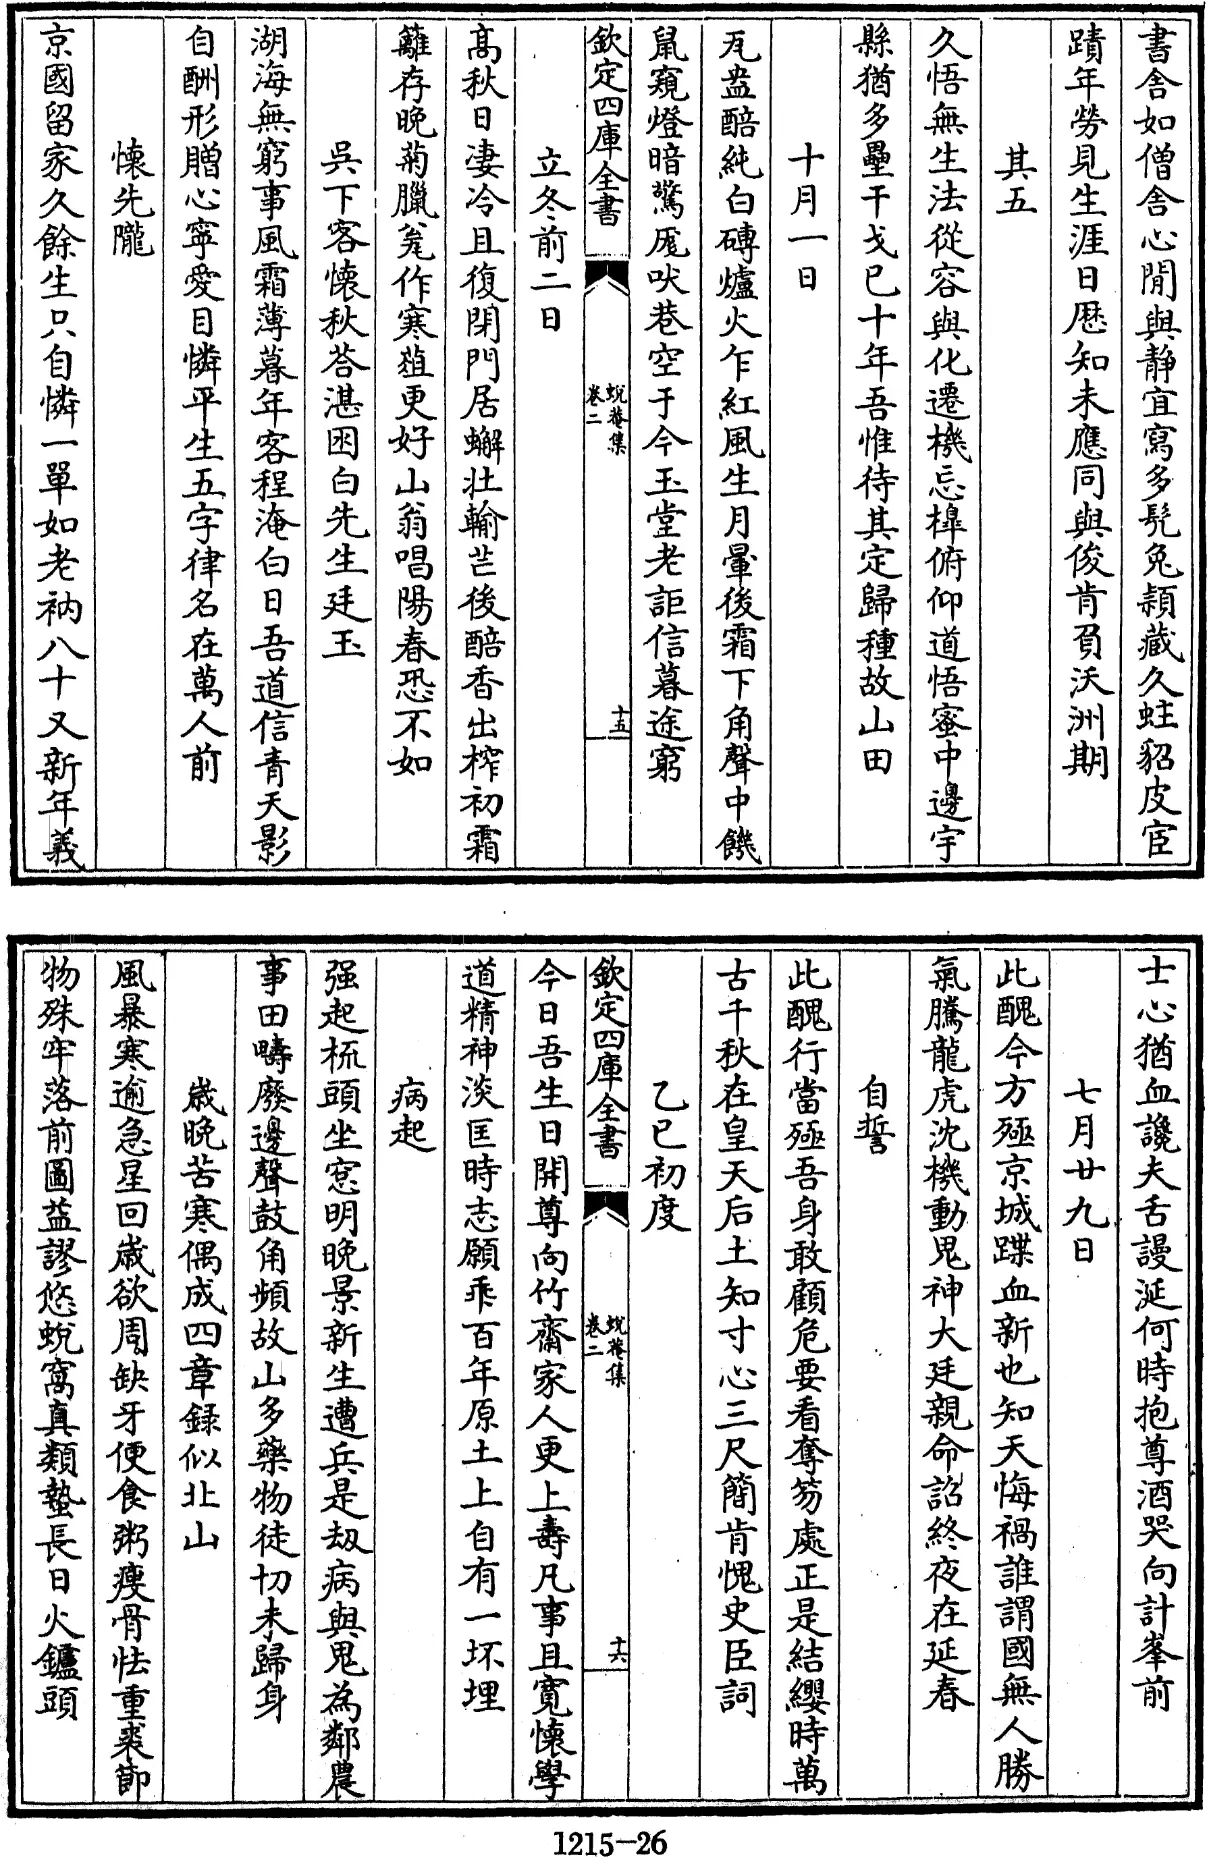 書舎如僧舎心閒與静宜窩多髡兔頴藏久蛀貂皮宦
蹟年勞見生涯日厯知未應同與俊肯負沃洲期
其五
久悟無生法從容與化遷機忘槹俯仰道悟蜜中邊宇
縣猶多壘干戈已十年吾惟待其定歸種故山田
十月一日
瓦盎醅純白磚爐火乍紅風生月暈後霜下角聲中饑
鼠窺燈暗驚厖吠巷空于今玉堂老詎信暮途窮
欽定四庫全書
蛻菴集
卷二
十五
立冬前二日
髙秋日凄冷且復閉門居蠏壯輸芒後醅香出榨初霜
籬存晚菊臘瓮作寒葅更好山翁唱陽春恐不如
吳下客懷秋荅湛囦白先生廷玉
湖海無窮事風霜薄暮年客程淹白日吾道信青天影
自酬形贈心寧愛目憐平生五字律名在萬人前
懷先隴
京國留家久餘生只自憐一單如老衲八十又新年義
士心猶血讒夫舌謾涎何時抱尊酒哭向計峯前
七月廿九日
此醜今方殛京城蹀血新也知天悔禍誰謂國無人勝
氣騰龍虎沈機動鬼神大廷親命詔終夜在延春
自誓
此醜行當殛吾身敢顧危要看奪笏處正是結纓時萬
古千秋在皇天后土知寸心三尺簡肯愧史臣詞
乙巳初度
欽定四庫全書
蛻菴集
卷二
十六
今日吾生日開尊向竹齋家人更上壽凡事且寛懷學
道精神淡匡時志願乖百年原土上自有一坏埋
病起
强起梳頭坐窓明晚景新生遭兵是刼病與鬼為鄰農
事田疇廢邊聲鼓角頻故山多藥物徒切未歸身
嵗晚苦寒偶成四章録似北山
風暴寒逾急星回嵗欲周缺牙便食粥瘦骨怯重裘節
物殊牢落前圖益謬悠蛻窩真類蟄長日火鑪頭
1215-26